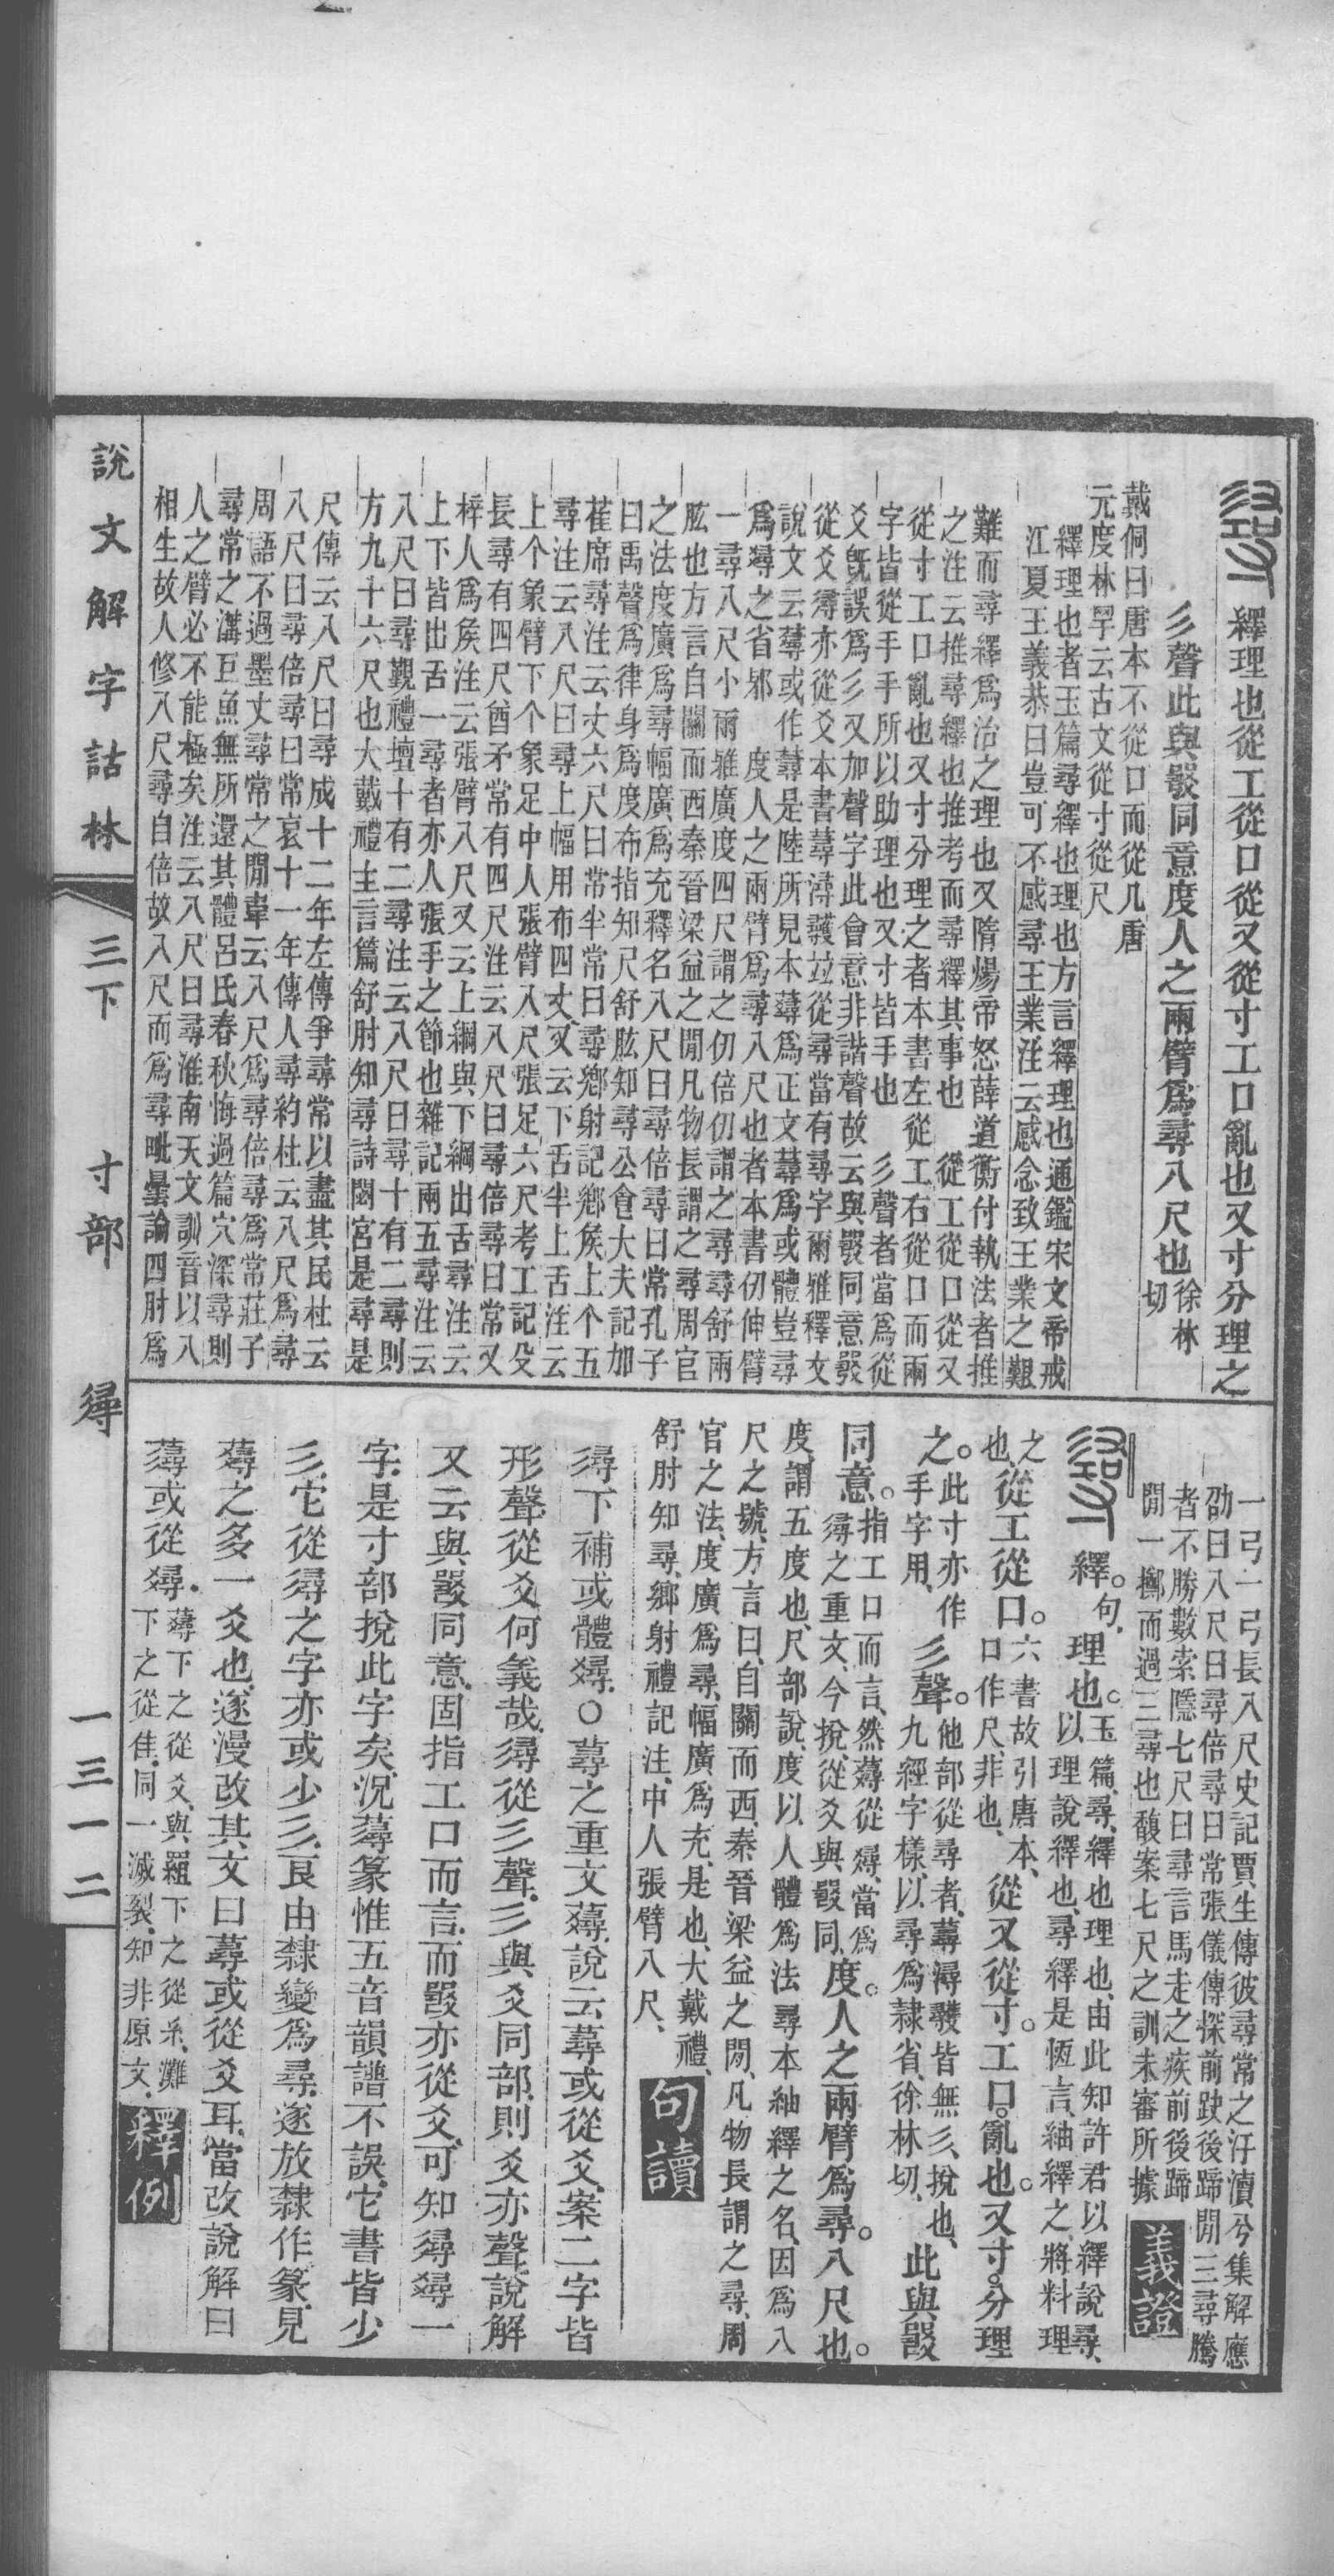 繹理也從工從口從又從寸工口亂也又寸分理之
彡聲此與𤕦同意度人之兩臂爲尋八尺也徐林切
戴侗曰唐本不從口而從几唐
元度林罕云古文從寸從尺
繹理也者玉篇尋繹也理也方言繹理也通鑑宋文帝戒
江夏王義恭曰豈可不感尋王業注云感念致王業之艱
難而尋繹爲治之理也又隋煬帝怒薛道衡付執法者推
之注云推尋繹也推考而尋繹其事也　從工從口從又
從寸工口亂也又寸分理之者本書左從工右從口而兩
字皆從手手所以助理也又寸皆手也　彡聲者當爲從
爻旣誤爲彡又加聲字此會意非諧聲故云與𤕦同意𤕦
從爻㝷亦從爻本書蕁潯㢙竝從尋當有尋字爾雅釋文
說文云薚或作蕁是陸所見本薚爲正文蕁爲或體豈尋
爲㝷之省邪　度人之兩臂爲尋八尺也者本書仞伸臂
一尋八尺小爾雅廣度四尺謂之仞倍仞謂之尋尋舒兩
肱也方言自關而西秦晉梁益之閒凡物長謂之尋周官
之法度廣爲尋幅廣爲充釋名八尺曰尋倍尋曰常孔子
曰禹聲爲律身爲度布指知尺舒肱知尋公食大夫記加
萑席尋注云丈六尺曰常半常曰尋鄉射記鄉矦上个五
尋注云八尺曰尋上幅用布四丈又云下舌半上舌注云
上个象臂下个象足中人張臂八尺張足六尺考工記殳
長尋有四尺酋矛常有四尺注云八尺曰尋倍尋曰常又
梓人爲矦注云張臂八尺又云上綱與下綱出舌尋注云
上下皆出舌一尋者亦人張手之節也雜記兩五尋注云
八尺曰尋覲禮壇十有二尋注云八尺曰尋十有二尋則
方九十六尺也大戴禮主言篇舒肘知尋詩閟宮是尋是
尺傳云八尺曰尋成十二年左傳爭尋常以盡其民杜云
八尺曰尋倍尋曰常哀十一年傳人尋約杜云八尺爲尋
周語不過墨丈尋常之閒韋云八尺爲尋倍尋爲常莊子
尋常之溝巨魚無所還其體呂氏春秋悔過篇穴深尋則
人之臂必不能極矣注云八尺曰尋淮南天文訓音以八
相生故人修八尺尋自倍故八尺而爲尋毗曇論四肘爲
一弓一弓長八尺史記賈生傳彼尋常之汙瀆兮集解應
劭曰八尺曰尋倍尋曰常張儀傳探前趹後蹄閒三尋騰
者不勝數索隱七尺曰尋言馬走之疾前後蹄
閒一擲而過三尋也馥案七尺之訓未審所據　義證
繹。句、理也。玉篇、尋、繹也理也、由此知許君以繹說尋、以理說繹也、尋繹是恆言、紬繹之、將料理之也、從工從口。六書故引唐本、口作尺、非也、從又從寸。工口。亂也。又寸。分理
之。此寸亦作手字用、彡聲。他部從尋者、蕁潯㢙皆無彡、挩也、九經字樣、以尋爲隸省、徐林切、此與𤕦
同意。指工口而言、然薚從㝷、當爲㝷之重文、今挩、從爻與𤕦同、度人之兩臂爲尋。八尺也。
度、謂五度也、尺部說、度以人體爲法尋本紬繹之名、因爲八
尺之號、方言曰、自關而西、秦晉梁益之閒、凡物長謂之尋、周
官之法、度廣爲尋、幅廣爲充、是也、大戴禮、
舒肘知尋、鄉射禮記注、中人張臂八尺、　句讀
㝷下補或體㝷、〇蕁之重文薚、說云蕁或從爻、案二字皆
形聲、從爻何義哉、㝷從彡聲、彡與爻同部、則爻亦聲、說解
又云與𤕦同意、固指工口而言、而𤕦亦從爻、可知㝷㝷一
字、是寸部挩此字矣、況蕁篆惟五音韻譜不誤、它書皆少
彡、它從㝷之字亦或少彡、良由隸變爲尋、遂放隸作篆、見
薚之多一爻也、遂漫改其文曰蕁或從爻耳、當改說解曰
蕁或從㝷、薚下之從爻、與羅下之從糸、灘下之從隹、同一滅裂、知非原文、　釋例
說文解字詁林　三下　寸部　㝷　一三一二